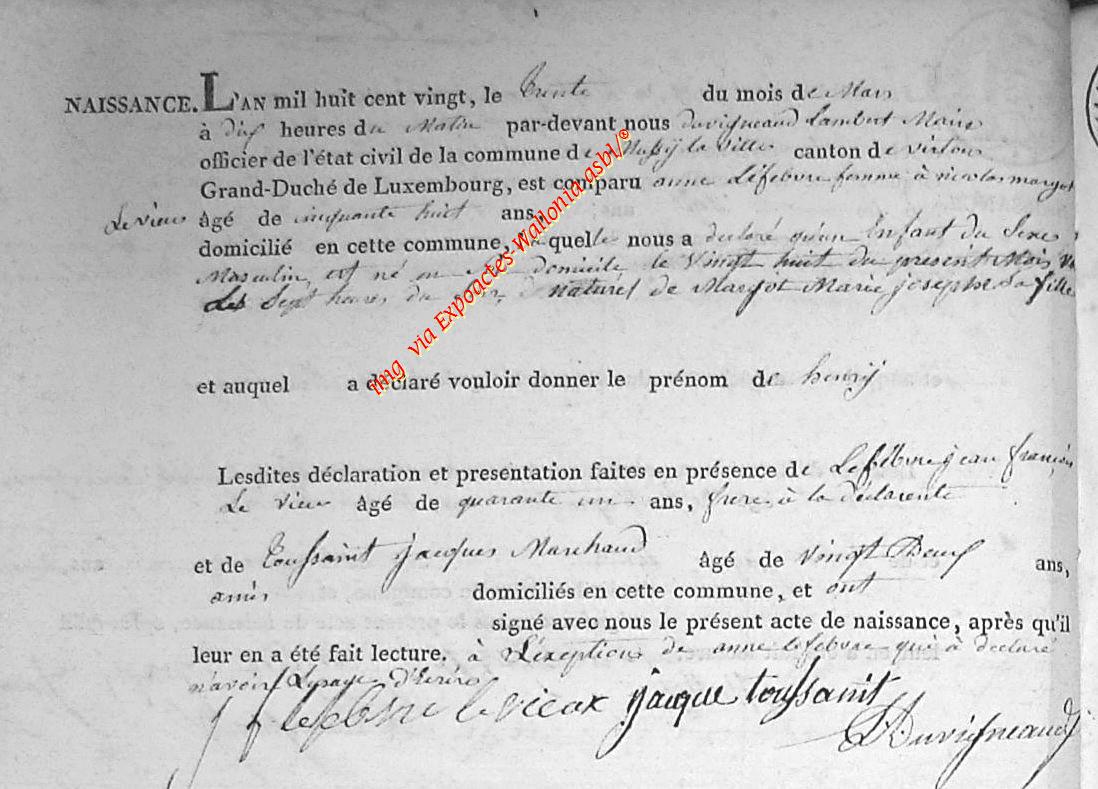 NAISSANCE. L'AN mil huit cent vingt, le Trente du mois de Mars
à dix heures du Matin par-devant nous duvigneaud Lambert Maire
officier de l'état civil de la commune de Mussÿ la ville canton de virton
Grand-Duché de Luxembourg, est comparu anne Lefebvre femme à nicolas margot
Le vieux âgé de cinquante huit ans,
domicilié en cette commune, laquelle nous a declaré qu'un Enfant du Sexe
Masculin, est né en domicile le Vingt huit du present Mois
Les Sept heures du naturel de Margot Marie josephe Sa fille
et auquel a déclaré vouloir donner le prénom de henrÿ
Lesdites déclaration et presentation faites en présence de Lefebvre jean francois
Le vieux âgé de quarante un ans, frere à la déclarente
et de Toussaint jacques Marchand âgé de Vingt Neuf ans,
amis domiciliés en cette commune, et ont
signé avec nous le présent acte de naissance, après qu'il
leur en a été fait lecture. à L'exeption de anne lefebvre qui à declaré
n'avoir L'usage d'Ecrire
j f lefebvre le vieux jjacque toussaint
Duvigneaud
img via Expoactes-Wallonia.asbl/©